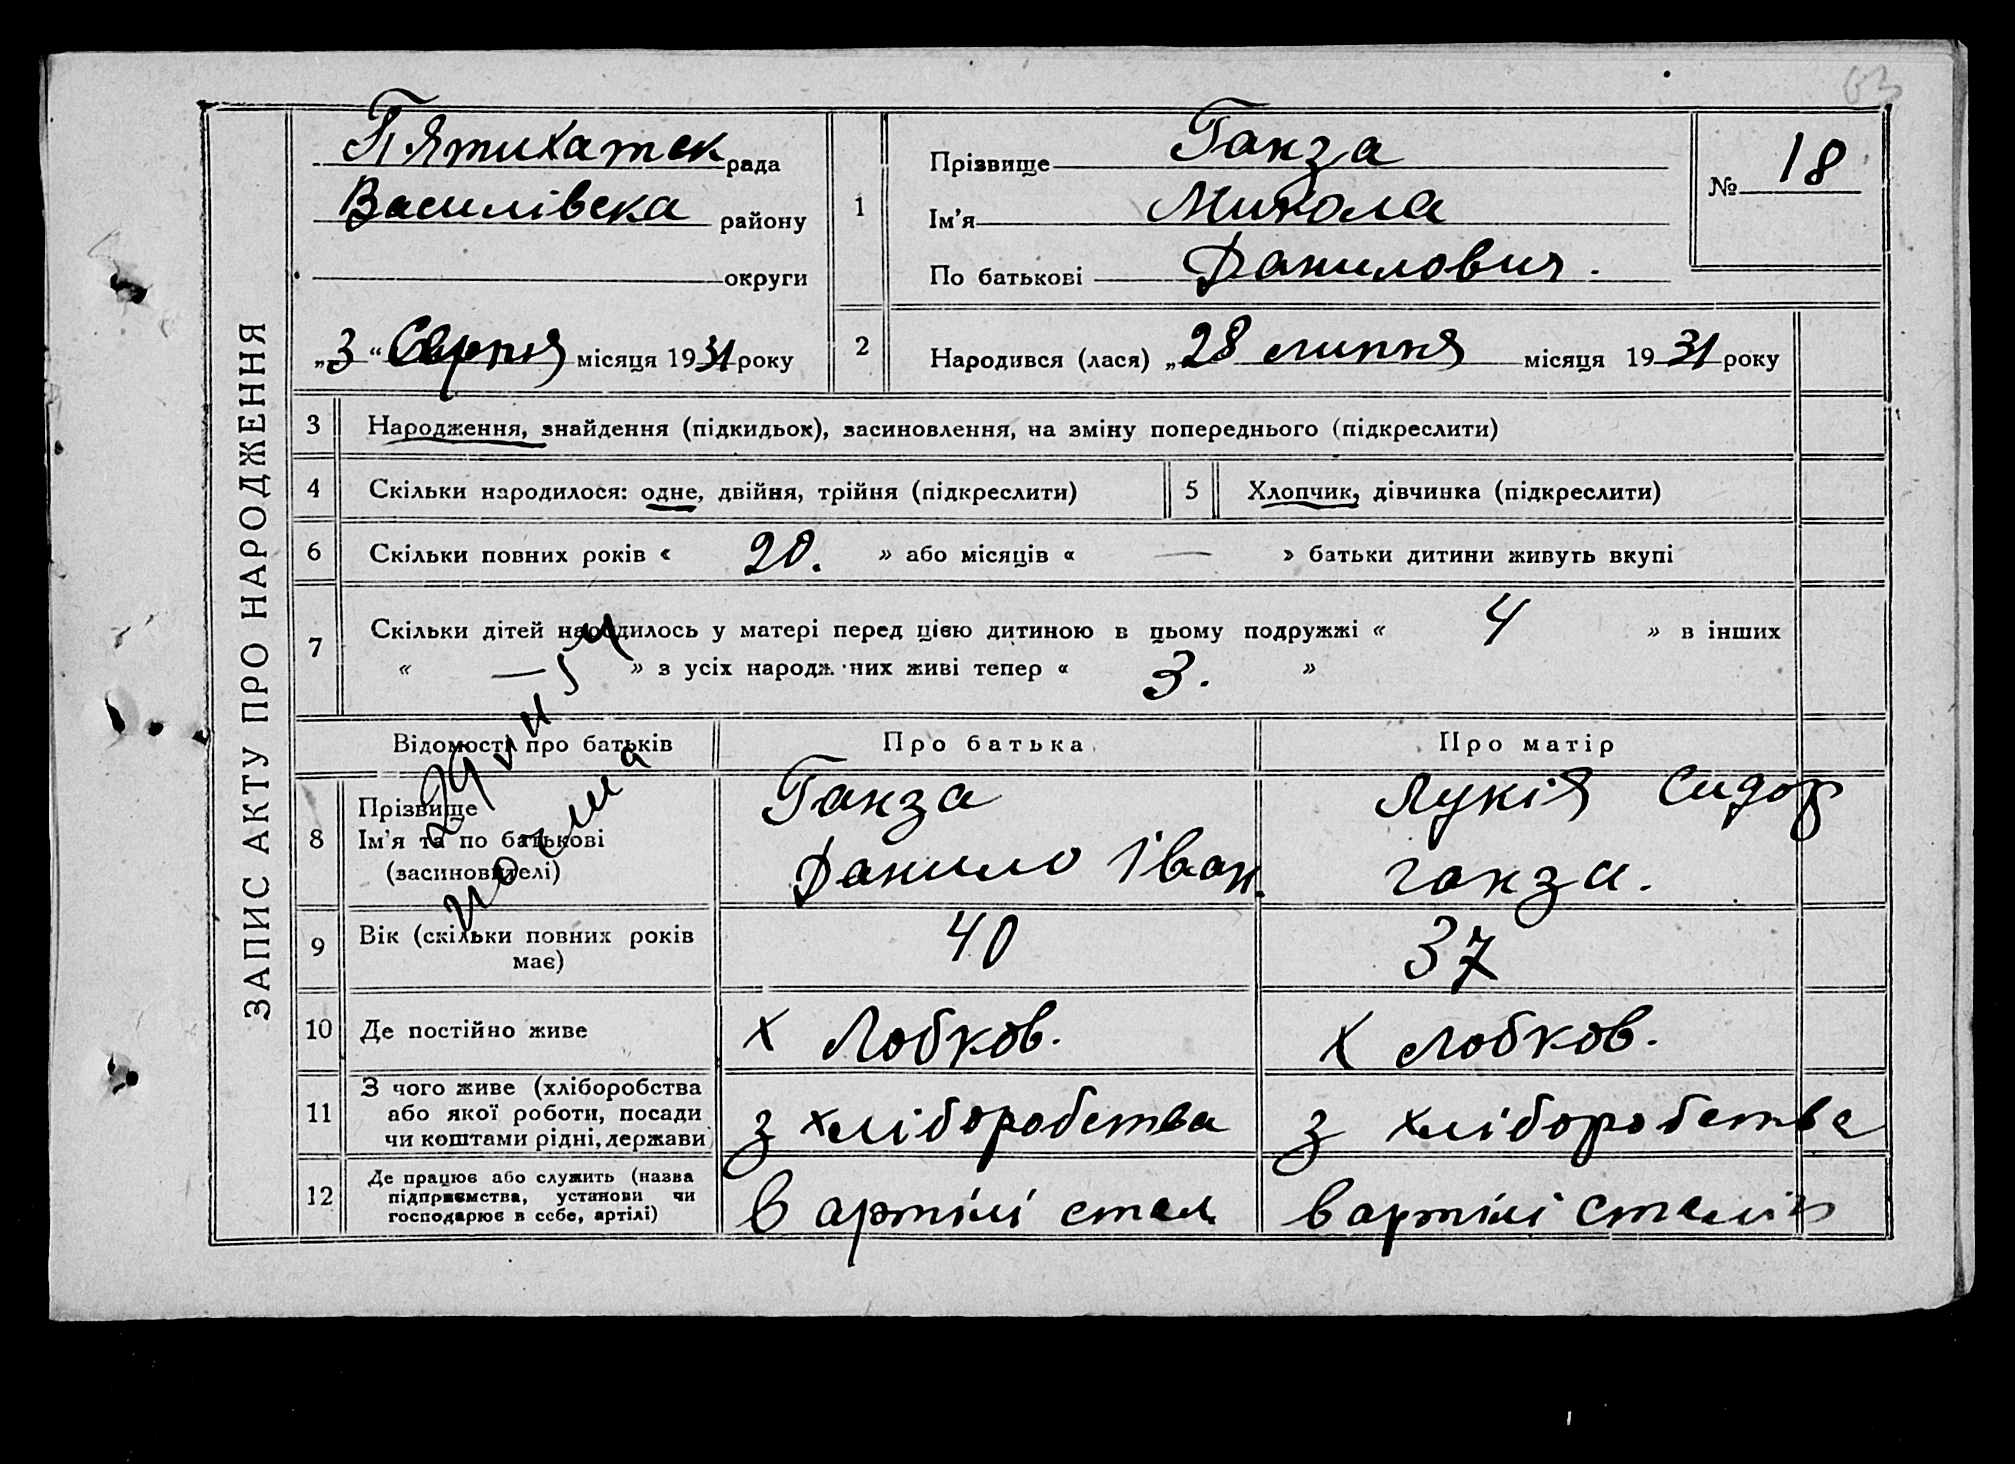 63
ЗАПИС АКТУ ПРО НАРОДЖЕННЯ
Пятихатек рада
Василівска району
округи
„3“ Серпня місяця 1931 року
1
Прізвище Ганза
Ім'я Микола
По батькові Данилович.
№ 18
2
Народився (лася) „28 липня місяця 1931 року
3 Народження, знайдення (підкидьох), засиновлення, на зміну попереднього (підкреслити)
4 Скільки народилося: одне, двійня, трійня (підкреслити)
5 Хлопчик, дівчинка (підкреслити)
6 Скільки повних років « 20. » або місяців « — » батьки дитини живуть вкупі
7 Скільки дітей народилось у матері перед цією дитиною в цьому подружжі « 4 » в інших
« — » з усіх народж них живі тепер « 3. »
Відомості про батьків
Про батька
Про матір
8 Прізвище
Ім'я та по батькові
(засиновителі)
Ганза
Данило Іван.
Лукія Сидор
Ганза.
9 Вік (скільки повних років
має)
40
37
10 Де постійно живе
х Лобков.
х Лобков.
11 З чого живе (хліборобства
або якої роботи, посади
чи коштами рідні, держави)
з хліборобства
з хліборобства
12 Де працює або служить (назва
підприємства, установи чи
господарює в себе, артілі)
в артілі стал
в артілі сталін